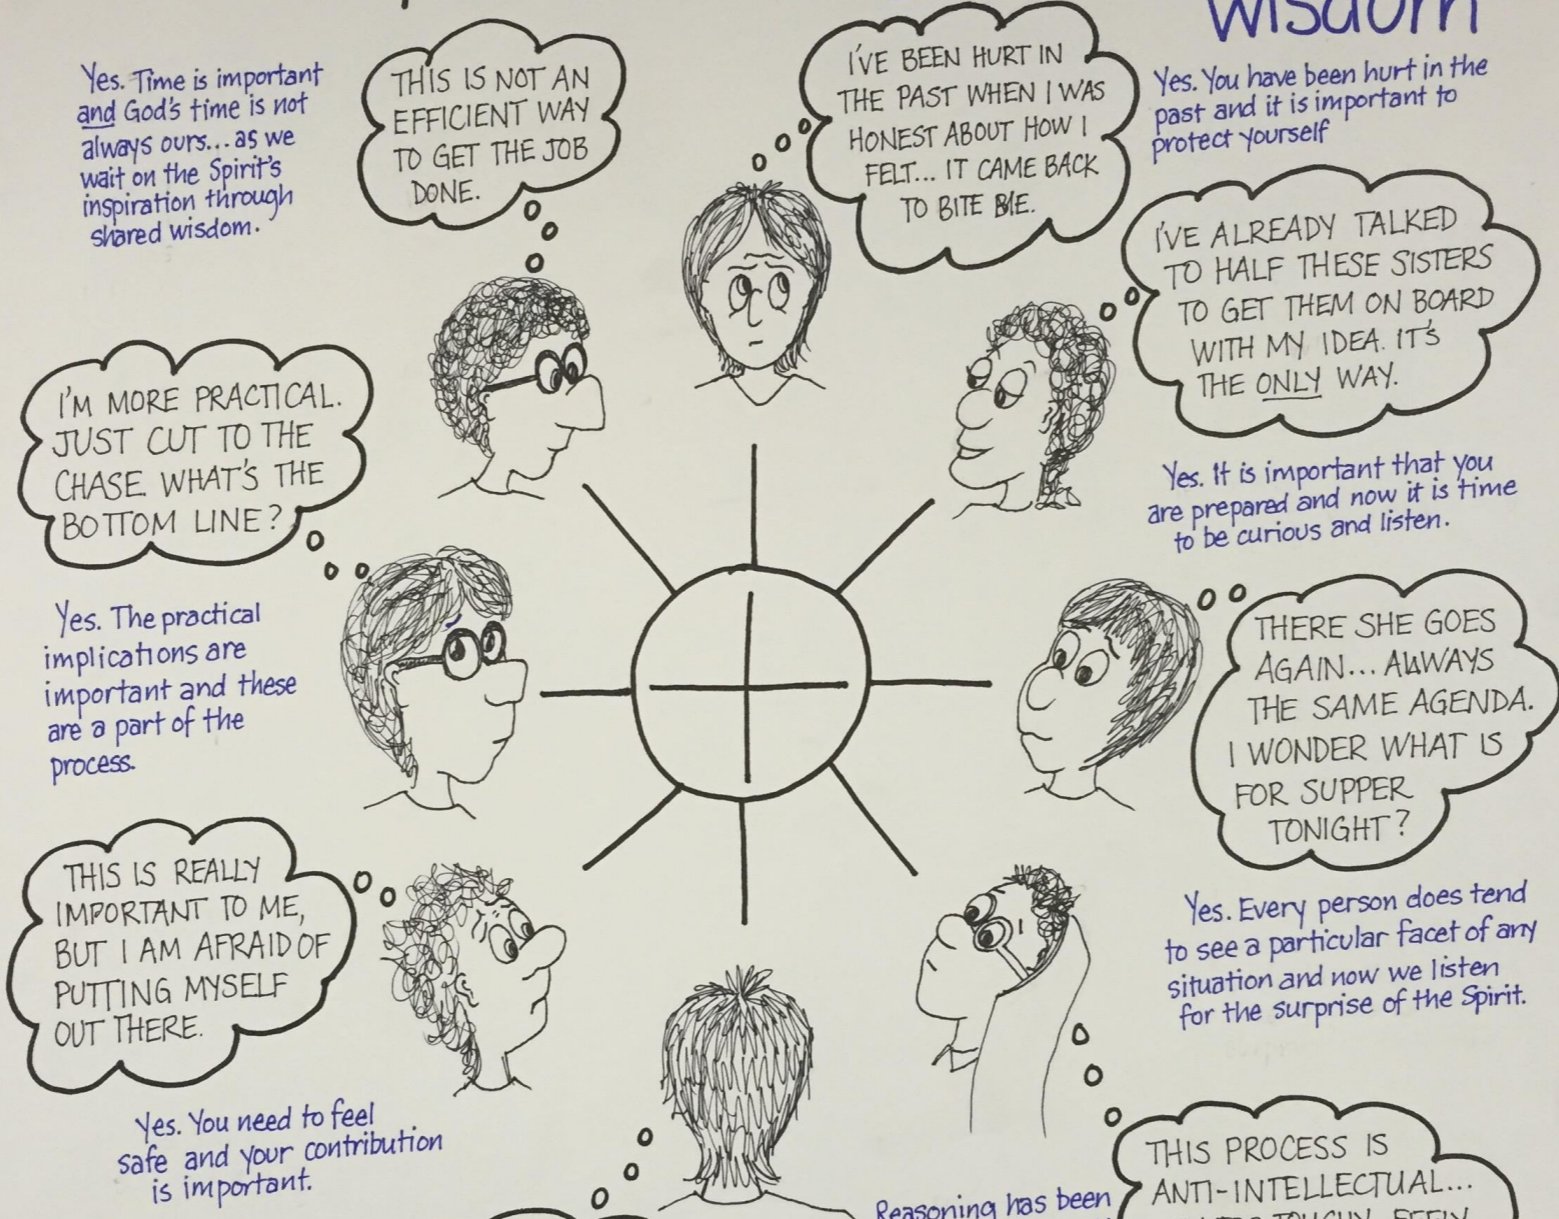 wisdom
Yes. Time is important
and God's time is not
always ours... as we
wait on the Spirit's
inspiration through
shared wisdom.
THIS IS NOT AN
EFFICIENT WAY
TO GET THE JOB
DONE.
I'VE BEEN HURT IN
THE PAST WHEN I WAS
HONEST ABOUT HOW I
FELT... IT CAME BACK
TO BITE ME.
Yes. You have been hurt in the
past and it is important to
protect yourself
I'VE ALREADY TALKED
TO HALF THESE SISTERS
TO GET THEM ON BOARD
WITH MY IDEA. IT'S
THE ONLY WAY.
Yes. It is important that you
are prepared and now it is time
to be curious and listen.
I'M MORE PRACTICAL.
JUST CUT TO THE
CHASE. WHAT'S THE
BOTTOM LINE?
Yes. The practical
implications are
important and these
are a part of the
process.
THERE SHE GOES
AGAIN... ALWAYS
THE SAME AGENDA.
I WONDER WHAT IS
FOR SUPPER
TONIGHT?
Yes. Every person does tend
to see a particular facet of any
situation and now we listen
for the surprise of the Spirit.
THIS IS REALLY
IMPORTANT TO ME,
BUT I AM AFRAID OF
PUTTING MYSELF
OUT THERE.
Yes. You need to feel
safe and your contribution
is important.
THIS PROCESS IS
ANTI-INTELLECTUAL...
Reasoning has been